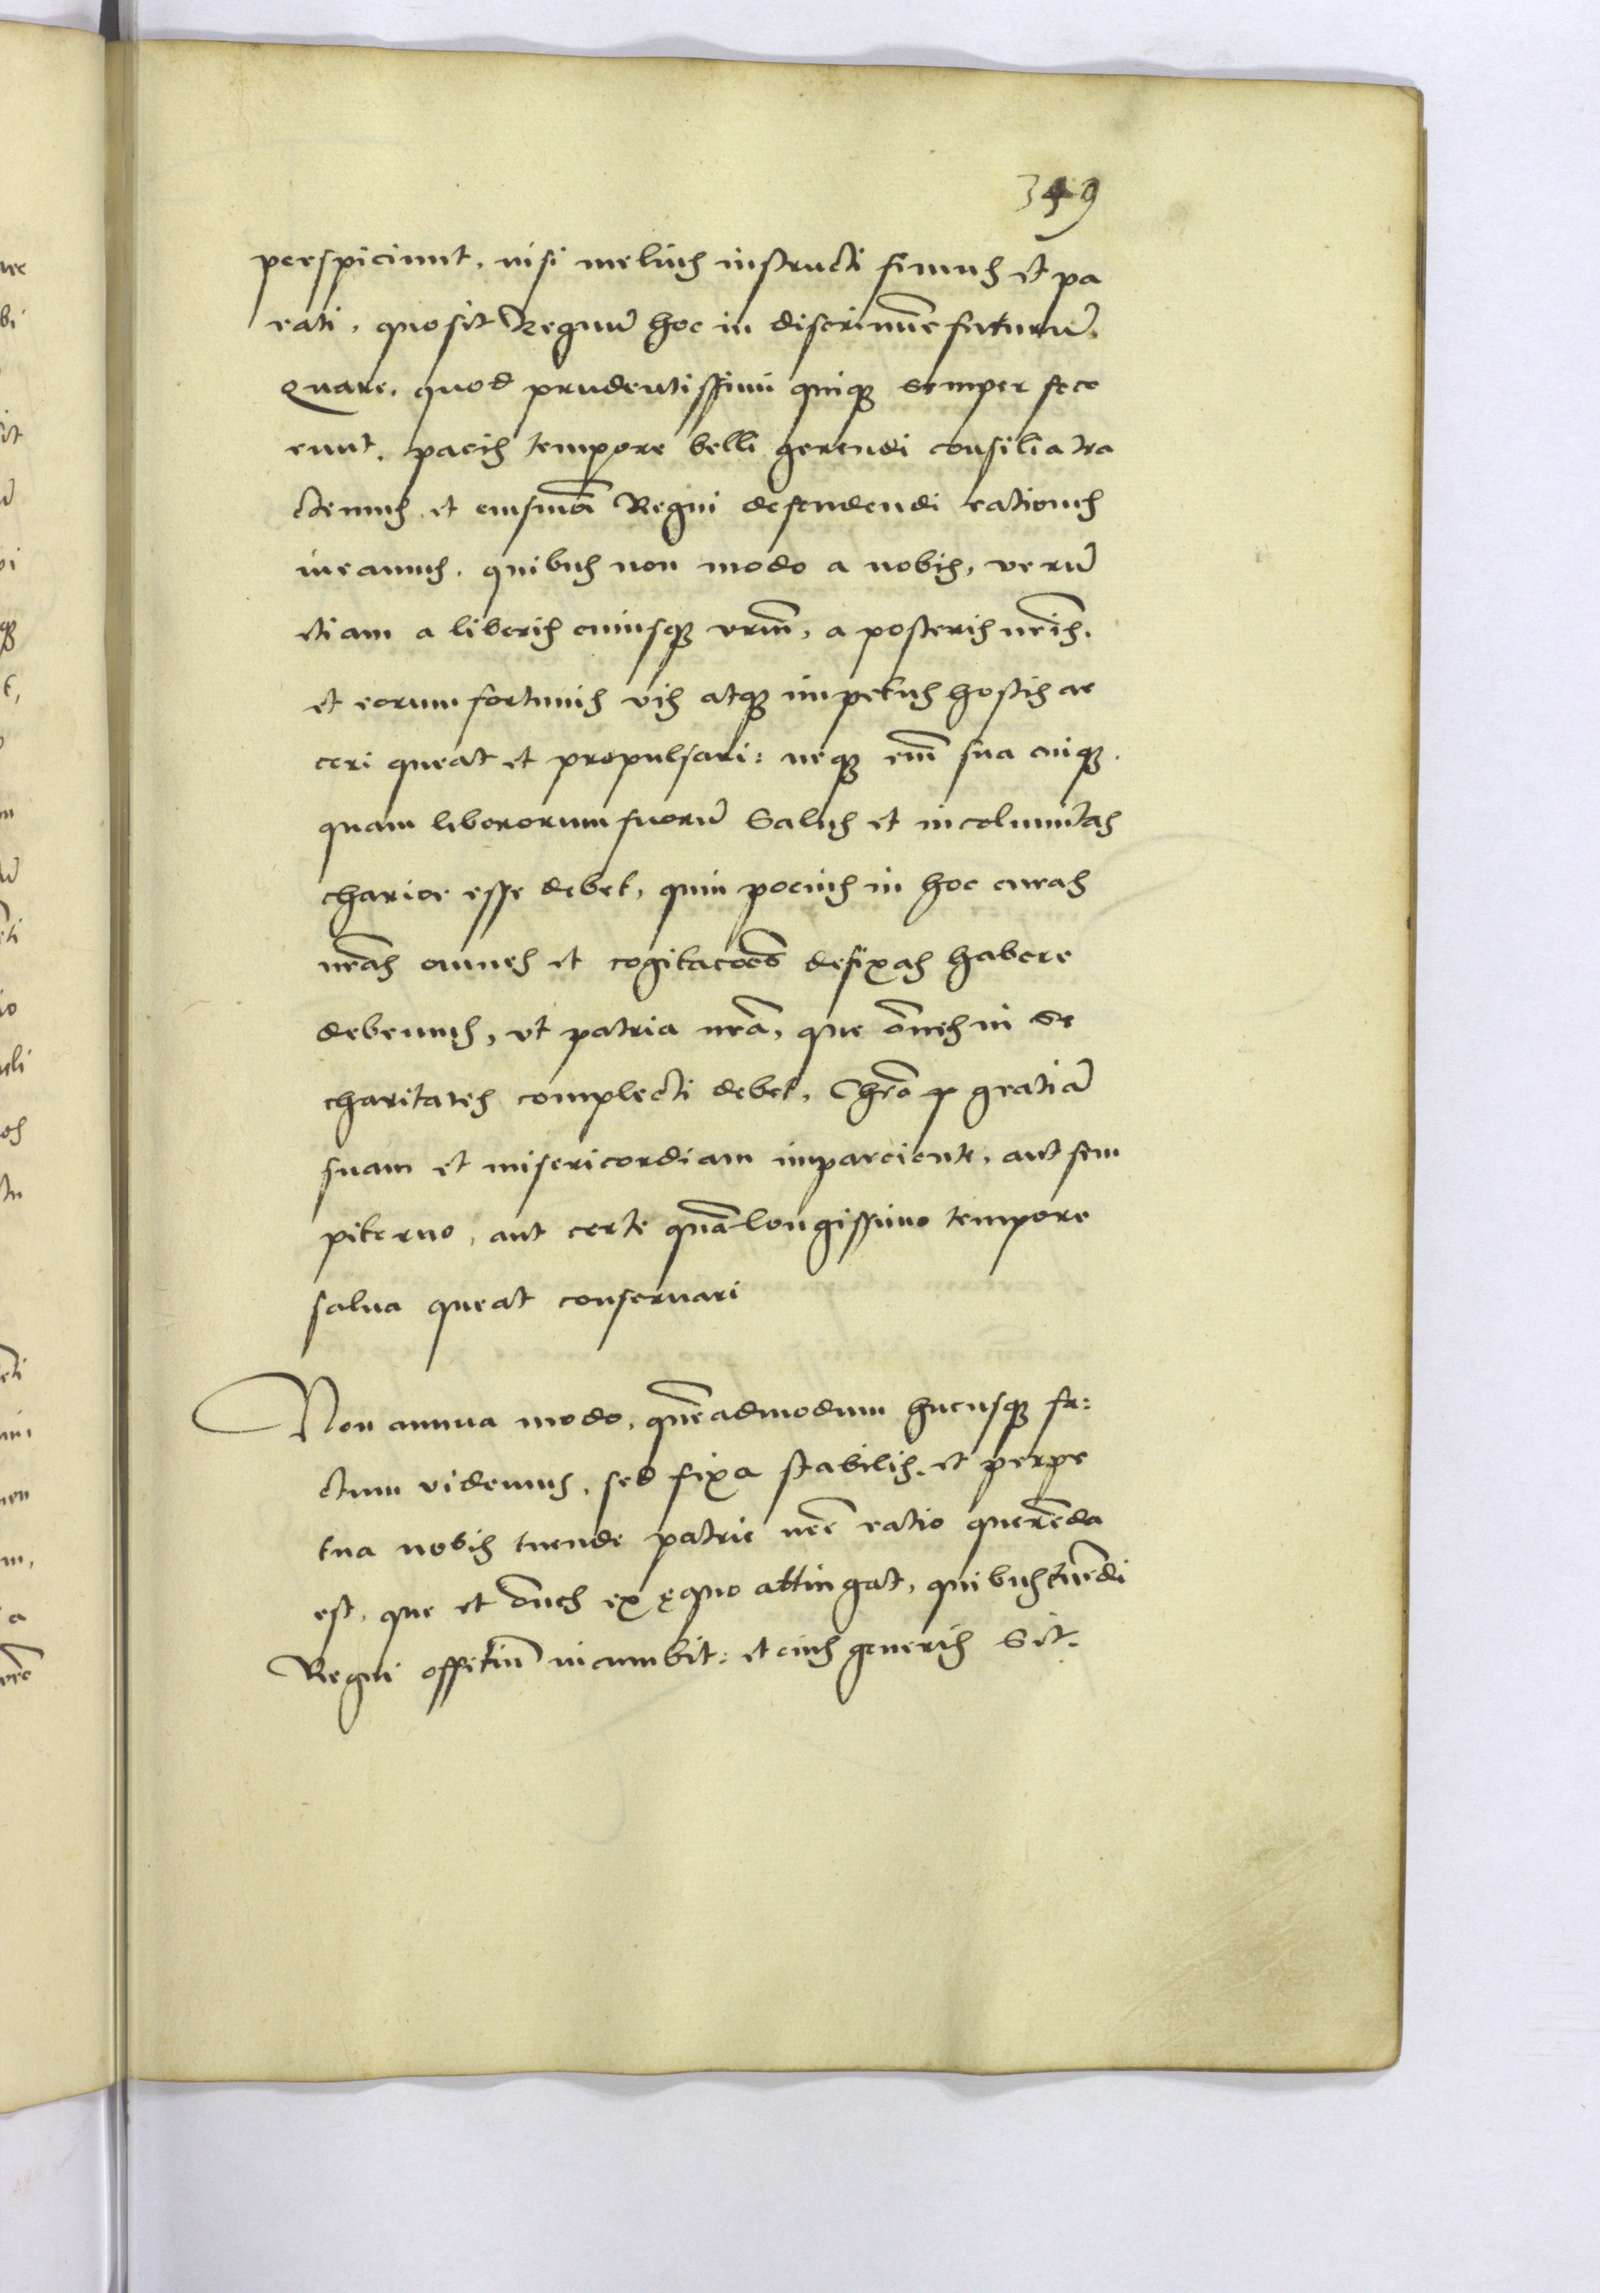 349
perspiciunt, nisi melius instructi simus et pa
rati, quo sit Regnũ hoc in discrimine futurũ.
Quare, quod prudentissimi quiqꝫ semper fece
runt, pacis tempore belli gerendi consilia tra
ctemus, et eiusmõi Regni defendendi rationes
ineamus, quibus non modo a nobis, verũ
etiam a liberis cuiusqꝫ vrm̃, a posteris nr̃is,
et eorum fortunis vis atqꝫ impetus hostis ar
ceri queat et propulsari: neqꝫ em̃ sua cuiqꝫ
quam liberorum suorũ salus et incolumitas
charior esse debet, quin pocius in hoc curas
nr̃as omnes et cogitacões defixas habere
debemus, vt patria nr̃a, que õmnes in se
charitates complecti debet, Chr̃o ꝑ gratiã
suam et misericordiam imparciente, aut sem
piterno, aut certe quã longissimo tempore
salua queat conseruari
Non annua modo, quẽadmodum hucusqꝫ fa:
ctum videmus, sed fixa stabilis, et perpe
tua nobis tuende patrie nr̃e ratio querẽda
est, que et õmnes ex ęquo attingat, quibus tuẽdi
Regni offitiũ incumbit: et eius generis sit.